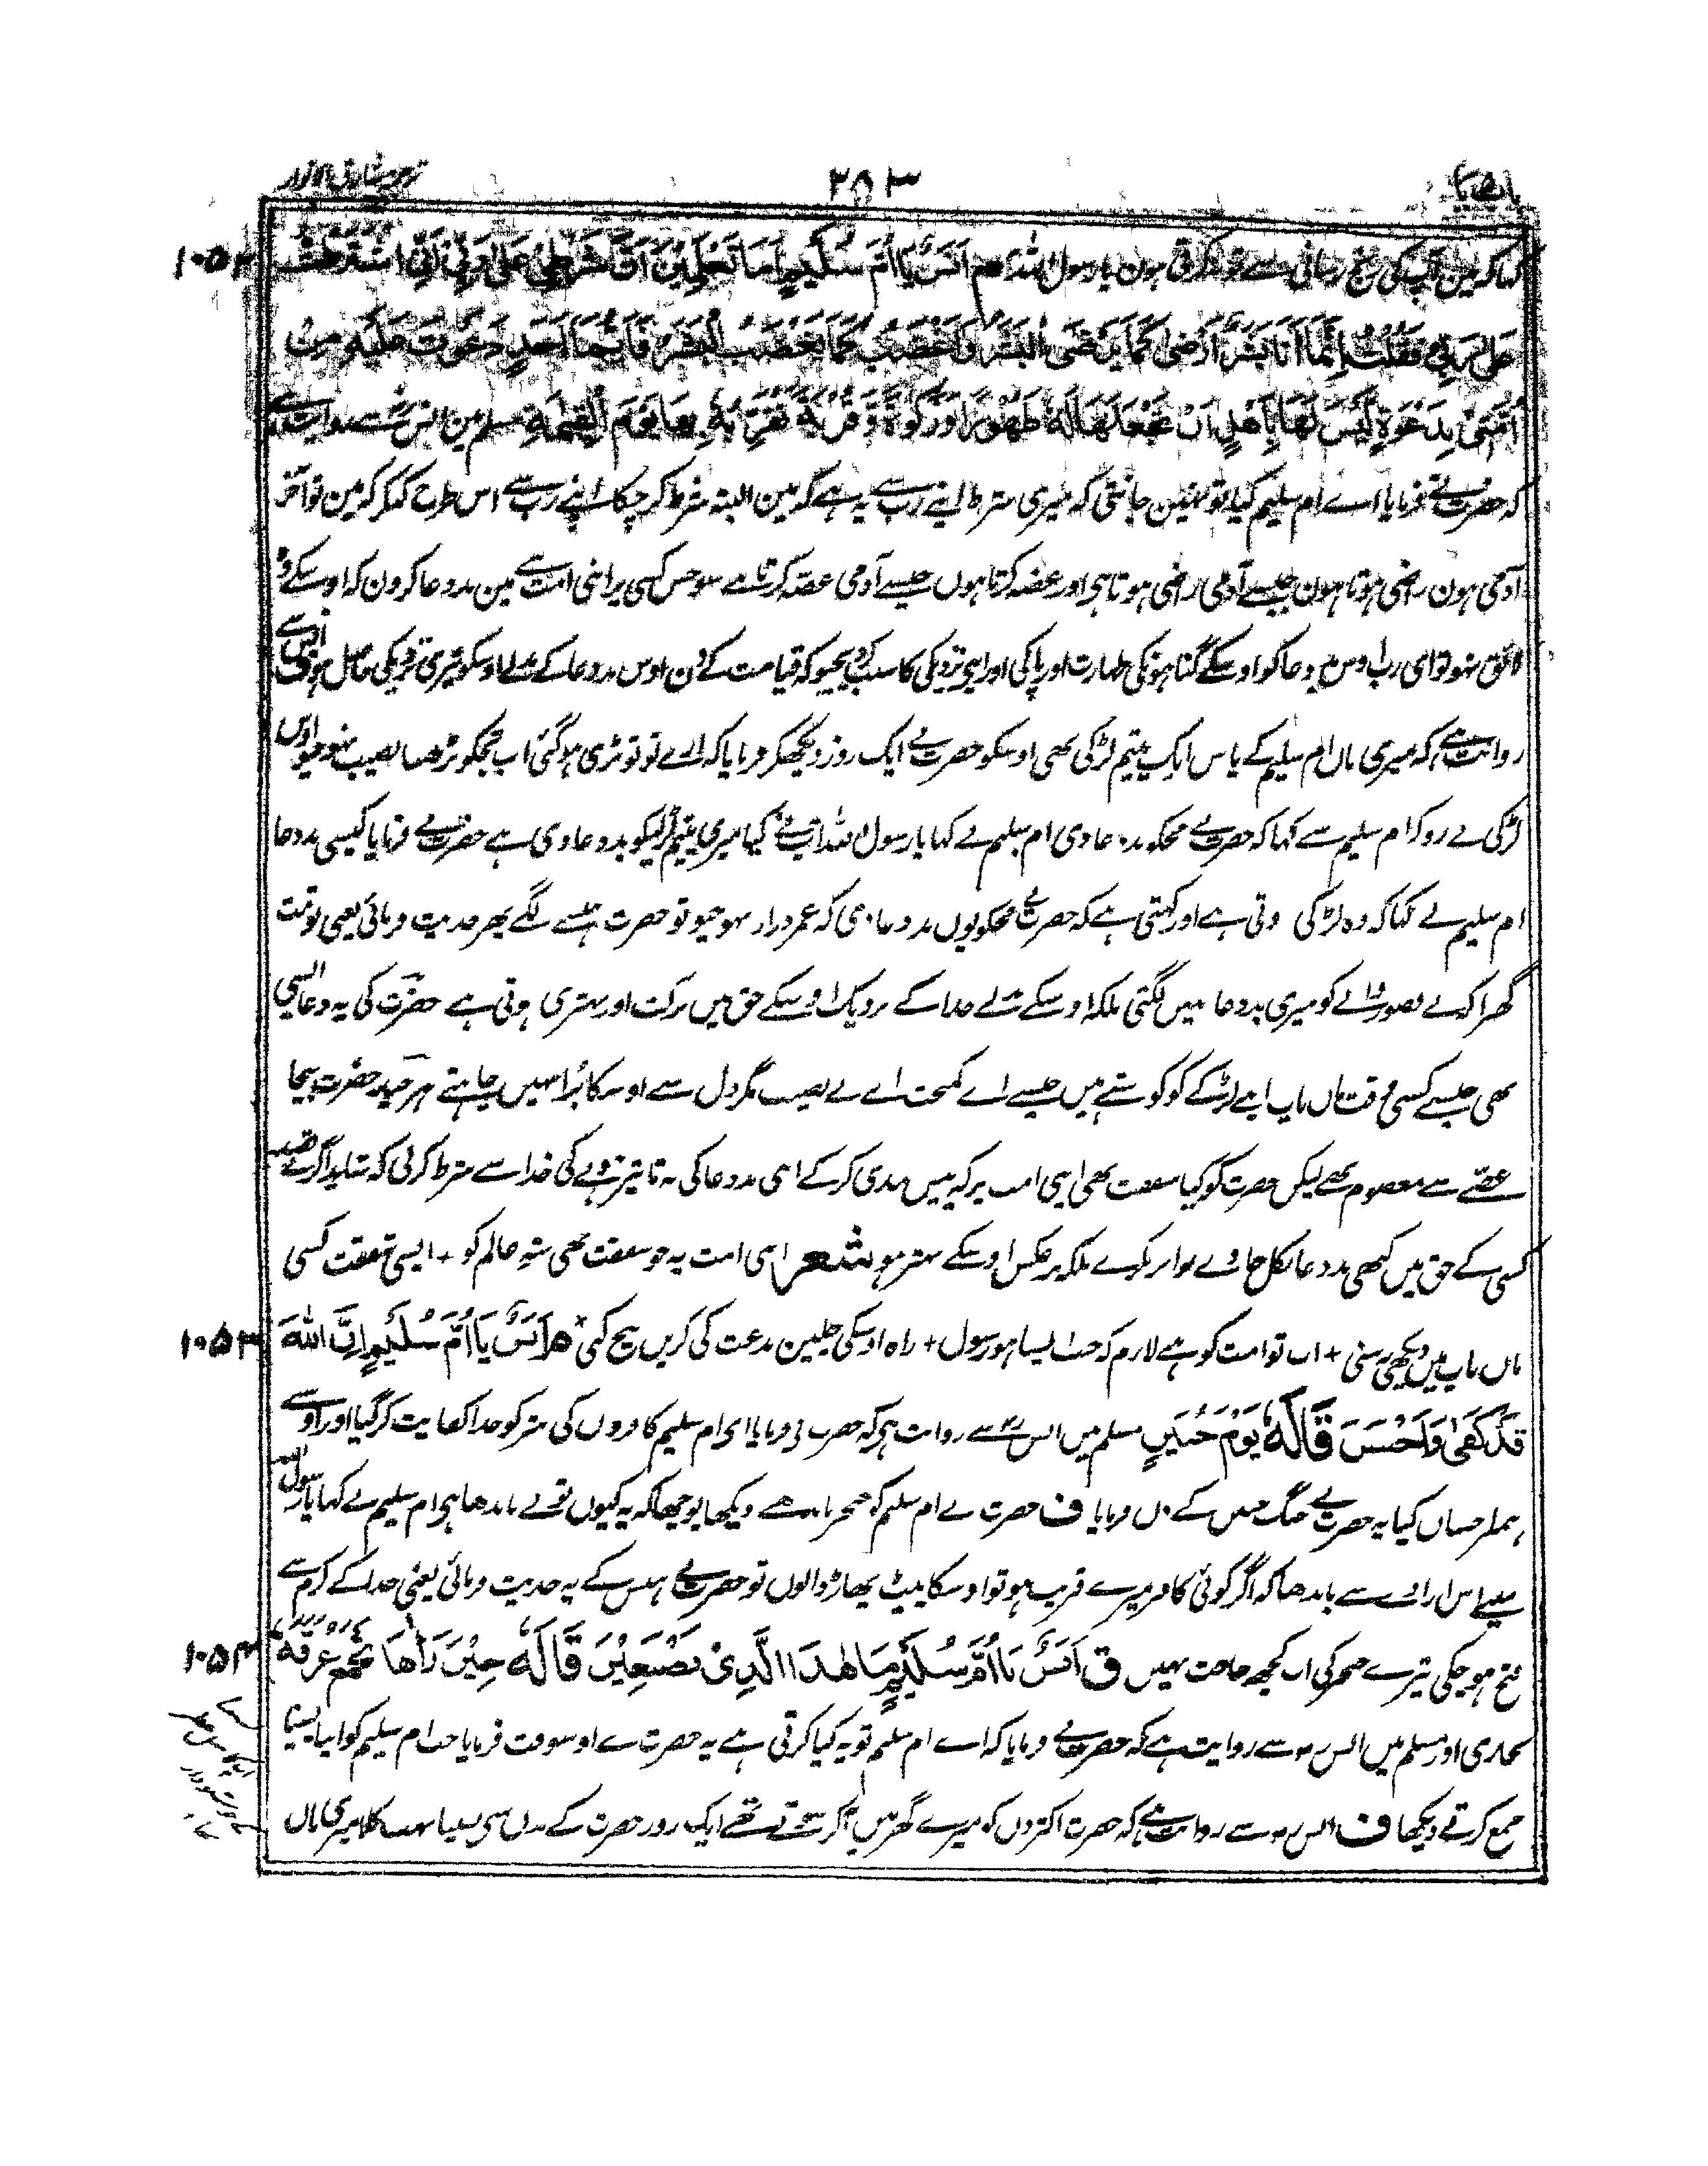 باب ۵ یا
۲۵۳
ترجمہ مشارق الانوار
کہا کہ میں آپ کی رنج رسانی سے توبہ کرتی ہوں یا رسول اللہ م اَنَسٌ یَا اُمَّ سُلَیْمٍ اَمَا تَعْلَمِیْنَ اَنَّ شَرْطِیْ عَلٰی رَبِّیْ اَنِّی اشْتَرَطْتُ
۱۰۵۲
عَلٰی رَبِّیْ فَقُلْتُ اِنَّمَا اَنَا بَشَرٌ اَرْضٰی کَمَا یَرْضَی الْبَشَرُ وَاَغْضَبُ کَمَا یَغْضَبُ الْبَشَرُ فَاَیُّمَا اَحَدٍ دَعَوْتُ عَلَیْہِ مِنْ
اُمَّتِیْ بِدَعْوَۃٍ لَیْسَ لَھَا بِاَھْلٍ اَنْ تَجْعَلَھَا لَہٗ طَھُوْرًا وَّزَکٰوۃً وَّقُرْبَۃً تُقَرِّبُہٗ بِھَا یَوْمَ الْقِیٰمَۃِ مسلم میں انس سے روایت ہے
کہ حضرت نے فرمایا اے ام سلیم کیا تو نہیں جانتی کہ میری شرط اپنے رب سے یہ ہے کہ میں البتہ شرط کر چکا اپنے رب سے اس طرح کہکر کہ میں تو آخر
آدمی ہون راضی ہوتا ہون جیسے آدمی راضی ہوتا ہی اور غصہ کرتا ہوں جیسے آدمی غصہ کرتا ہے سو جس کسی پر اپنی امت سے مین بددعا کرون کہ اوسکے وہ
لائق نہو تو ای رب اوس بددعا کو اوسکے گناہونکی طہارت اور پاکی اور اپنی نزدیکی کا سبب کر دیجیو کہ قیامت کے دن اوس بددعا کے بدلے اوسکو تیری نزدیکی حاصل ہو ف انس سے
روایت ہے کہ میری ماں ام سلیم کے پاس ایک یتیم لڑکی تھی اوسکو حضرت نے ایک روز دیکھکر فرمایا کہ ارے تو تو بڑی ہو گئی اب تجکو بڑھاپا نصیب نہوجیو اوس
لڑکی نے رو کر ام سلیم سے کہا کہ حضرت نے مجکو بددعا دی ام سلیم نے کہا یا رسول اللہ آپ نے کیا میری یتیم لڑکیکو بددعا دی ہے حضرت نے فرمایا کیسی بددعا
ام سلیم نے کہا کہ وہ لڑکی روتی ہے اور کہتی ہے کہ حضرت نے مجکو یوں بددعا دی کہ عمر دراز نہوجیو تو حضرت ہنسنے لگے پھر حدیث فرمائی یعنی تو مت
گھبرا کہ بے قصور والے کو میری بددعا نہیں لگتی بلکہ اوسکے بدلے خدا کے نزدیک اوسکے حق میں برکت اور بہتری ہوتی ہے حضرت کی یہ دعا ایسی
تھی جیسے کسی وقت ماں باپ اپنے لڑکے کو کوستے ہیں جیسے اے کمبخت اے بے نصیب مگر دل سے اوسکا بُرا نہیں چاہتے ہر چند حضرت بیجا
غصے سے معصوم تھے لیکن حضرت کو کیا شفقت تھی اپنی امت پر کہ پیش بندی کر کے اپنی بددعا کی نہ تاثیر ہونے کی خدا سے شرط کر لی کہ شاید اگر بے قصد
کسی کے حق میں کبھی بددعا نکل جاوے تو اثر نکرے بلکہ بر عکس اوسکے بہتر ہو شعر اپنی امت پہ جو شفقت تھی شہِ عالم کو + ایسی شفقت کسی
ماں باپ میں دیکھی نہ سنی + اب تو امت کو ہے لازم کہ جب ایسا ہو رسول + راہ اوسکی چلیں بدعت کی کریں بیخ کنی م اَنَسٌ یَا اُمَّ سُلَیْمٍ اِنَّ اللّٰہَ
۱۰۵۳
قَدْ کَفٰی وَاَحْسَنَ قَالَہٗ یَوْمَ حُنَیْنٍ مسلم میں انس سے روایت ہی کہ حضرت نے فرمایا ای ام سلیم کافروں کی شر کو خدا کفایت کر گیا اور اوسنے
ہمپر احسان کیا یہ حضرت نے جنگ حنین کے دن فرمایا ف حضرت نے ام سلیم کو خنجر باندھے دیکھا پوچھا کہ یہ کیوں تونے باندھا ہی ام سلیم نے کہا یا رسول اللہ
مینے اس ارادے سے باندھا کہ اگر کوئی کافر میرے قریب ہو تو اوسکا پیٹ پھاڑ ڈالوں تو حضرت نے ہنس کے یہ حدیث فرمائی یعنی خدا کے کرم سے
فتح ہو چکی تیرے خنجر کی اب کچھ حاجت نہیں ق اَنَسٌ یَا اُمَّ سُلَیْمٍ مَا ھٰذَا الَّذِیْ تَصْنَعِیْنَ قَالَہٗ حِیْنَ رَاٰھَا تَجْمَعُ عَرَقَہٗ
۱۰۵۴
بخاری اور مسلم میں انس سے روایت ہے کہ حضرت نے فرمایا کہ اے ام سلیم تو یہ کیا کرتی ہے یہ حضرت نے اوسوقت فرمایا جب ام سلیم کو اپنا پسینا
جمع کرتے دیکھا ف انس سے روایت ہے کہ حضرت اکثر دنوں کو میرے گھر میں آکر سوتے تھے ایک روز حضرت کے بدن سی پسینا بہت نکلا میری ماں